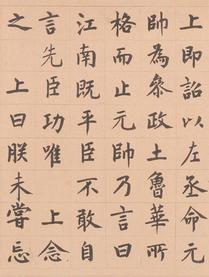 上即詔以左丞命元
帥為叅政土魯華所
格而止元帥乃言曰
江南既平臣不敢自
言先臣功唯 上念
之 上曰朕未嘗忘